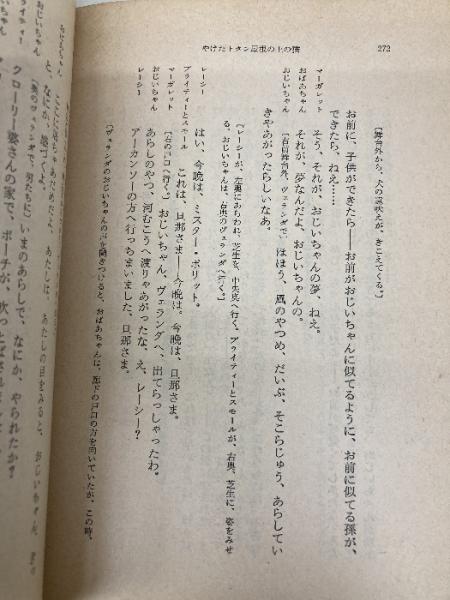 やけたトタン屋根の上の猫 272
〔舞台外から、犬の遠吠えが、きこえてくる。〕
お前に、子供ができたら——お前がおじいちゃんに似てるように、お前に似てる孫が、
できたら、ねえ……
マーガレット そう、それが、おじいちゃんの夢、ねえ。
おばあちゃん それが、夢なんだよ、おじいちゃんの。
おじいちゃん 〔右前舞台外、ヴェランダで〕ほほう、風のやつめ、だいぶ、そこらじゅう、あらしてい
きやがったらしいなあ。
〔レーシーが、左裏にあらわれ、芝生を、中央奥へ行く。ブライティーとスモールが、右奥、芝生に、姿をみせ
る。おじいちゃんは、右奥のヴェランダへ行く。〕
レーシー はい、今晩は、ミスター・ポリット。
ブライティーとスモール これは、旦那さま——今晩は。今晩は、旦那さま。
マーガレット 〔左の戸口へ行く。〕おじいちゃん、ヴェランダへ、出てらっしゃったわ。
おじいちゃん あらしのやつ、河むこうへ渡りゃあがったな、え、レーシー？
レーシー アーカンソーの方へ行っちまいました、旦那さま。
〔ヴェランダのおじいちゃんの声を聞きつけると、おばあちゃんは、廊下の戸口の方を向いていたが、この時、
あたしの目をみると、おじいちゃん
と、なにか、感づくわ。
おじいちゃん 〔奥のヴェランダで、男たちに〕いまのあらしで、なにか、やられたか？
クローリー婆さんの家で、ポーチが、吹っとばされ